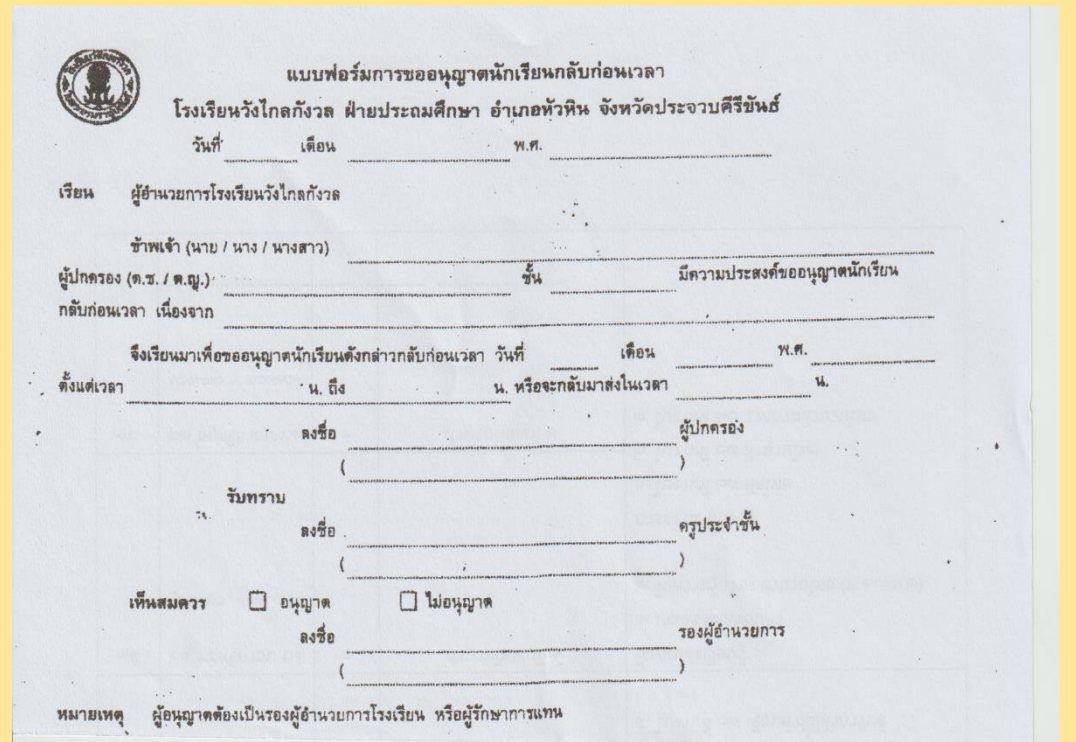 แบบฟอร์มการขออนุญาตนักเรียนกลับก่อนเวลา
โรงเรียนวังไกลกังวล ฝ่ายประถมศึกษา อำเภอหัวหิน จังหวัดประจวบคีรีขันธ์
วันที่ เดือน พ.ศ.
เรียน ผู้อำนวยการโรงเรียนวังไกลกังวล
ข้าพเจ้า (นาย / นาง / นางสาว)
ผู้ปกครอง (ด.ช. / ด.ญ.) ชั้น มีความประสงค์ขออนุญาตนักเรียน
กลับก่อนเวลา เนื่องจาก
จึงเรียนมาเพื่อขออนุญาตนักเรียนดังกล่าวกลับก่อนเวลา วันที่ เดือน พ.ศ.
ตั้งแต่เวลา น. ถึง น. หรือจะกลับมาส่งในเวลา น.
ลงชื่อ ผู้ปกครอง
( )
รับทราบ
ลงชื่อ ครูประจำชั้น
( )
เห็นสมควร ☐ อนุญาต ☐ ไม่อนุญาต
ลงชื่อ รองผู้อำนวยการ
( )
หมายเหตุ ผู้อนุญาตต้องเป็นรองผู้อำนวยการโรงเรียน หรือผู้รักษาการแทน